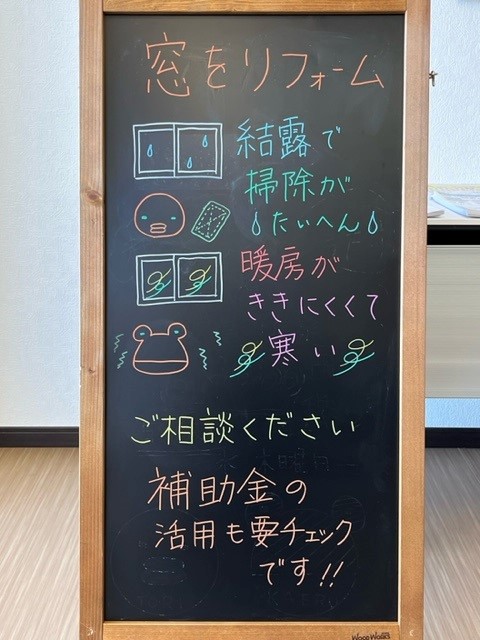 窓をリフォーム
結露で
掃除が
たいへん
暖房が
ききにくくて
寒い
ご相談ください
補助金の
活用も要チェック
です!!